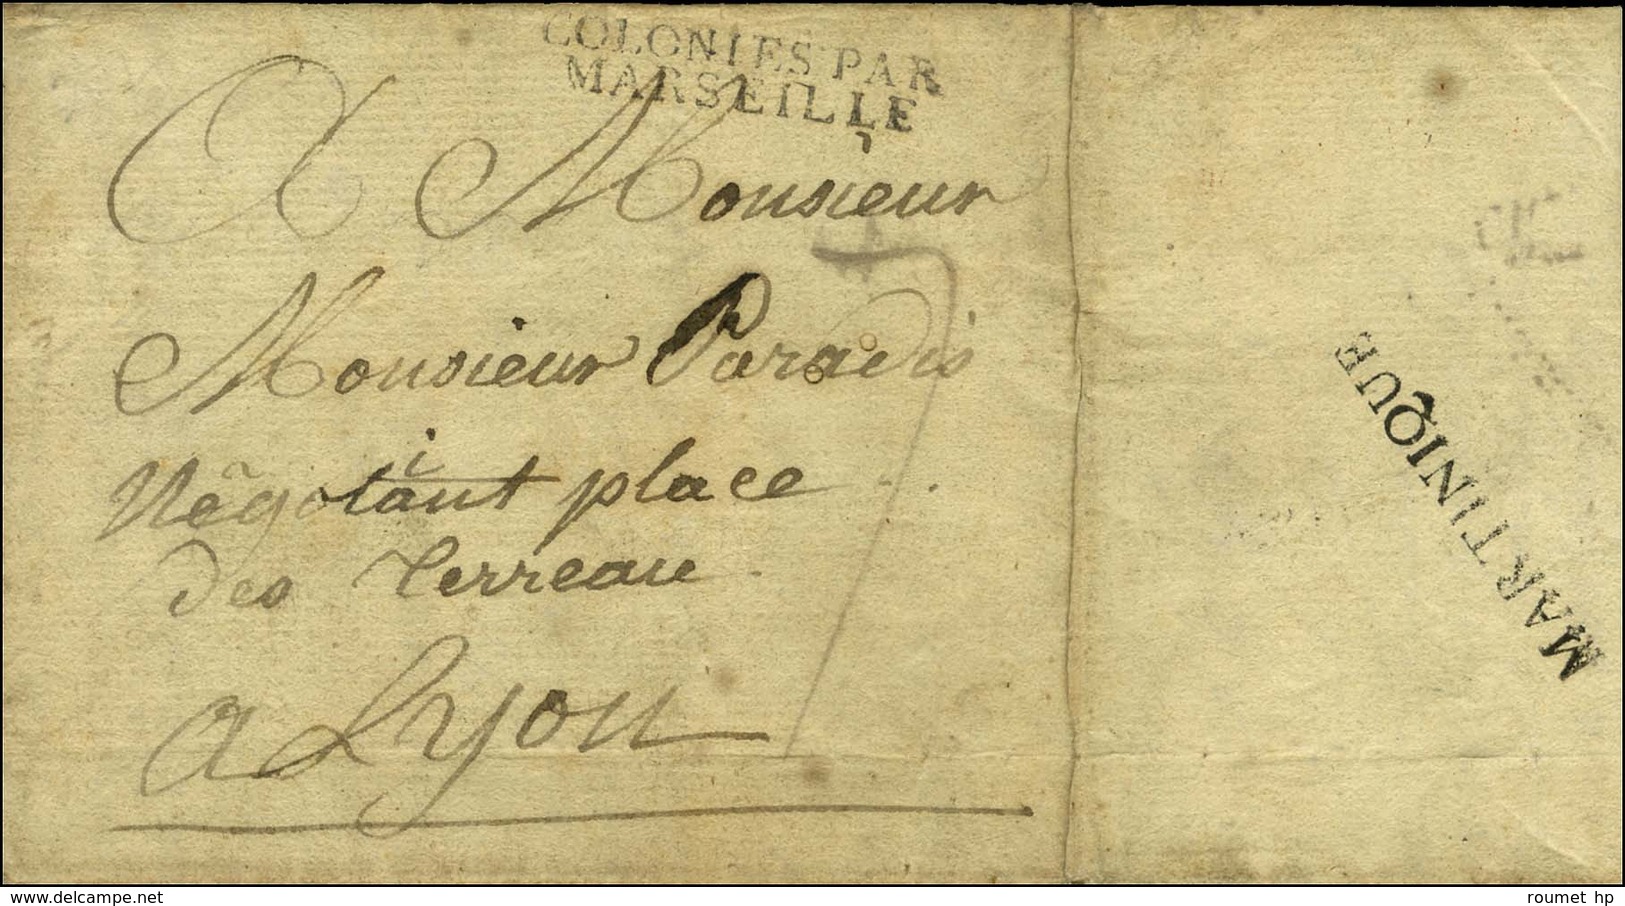 COLONIES PAR
MARSEILLE
A Monsieur
Monsieur Paradis
Nêgotiant place
des terreau
a Lyon
7
MARTINIQUE
delcampe.net
roumet hp